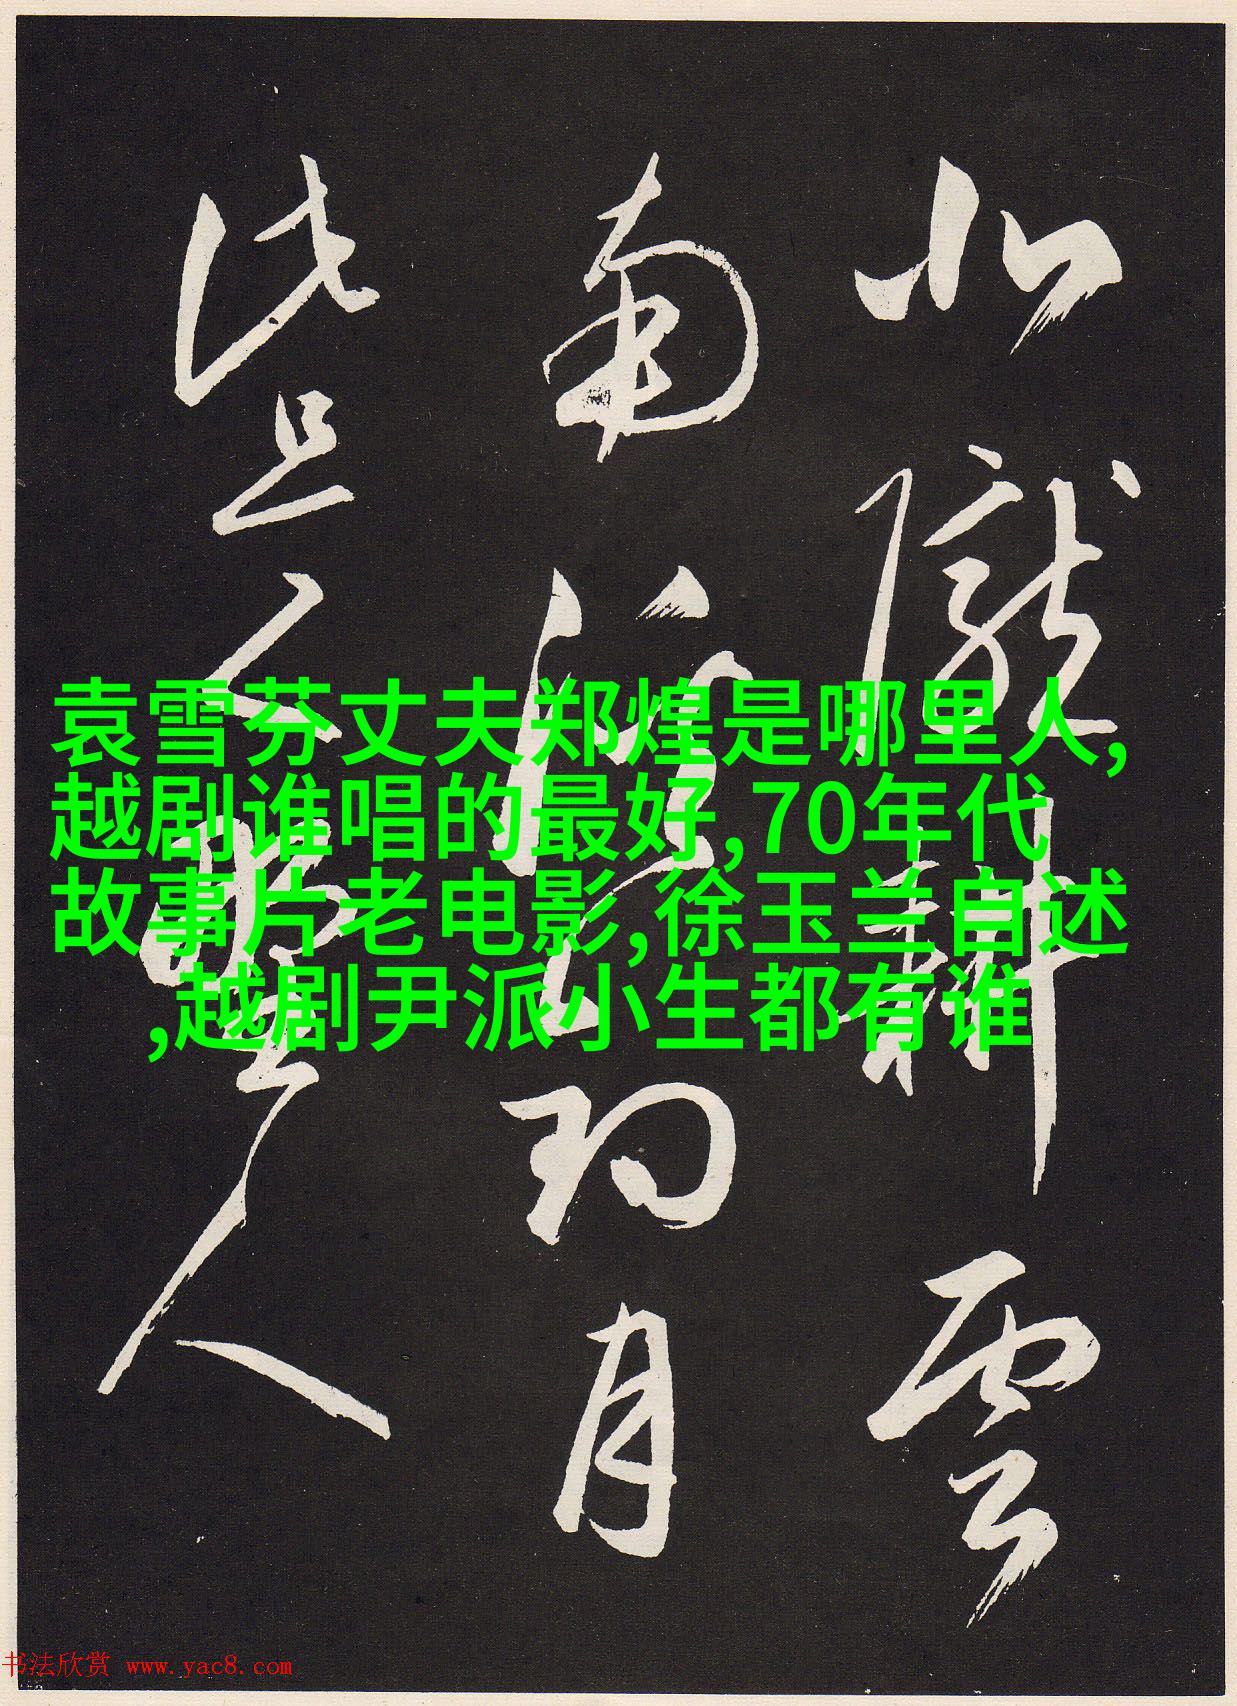 北隴耕雲
南溪釣月
此是野人
袁雪芬丈夫郑煌是哪里人,
越剧谁唱的最好,70年代
故事片老电影,徐玉兰自述
,越剧尹派小生都有谁
书法欣赏 www.yac8.com